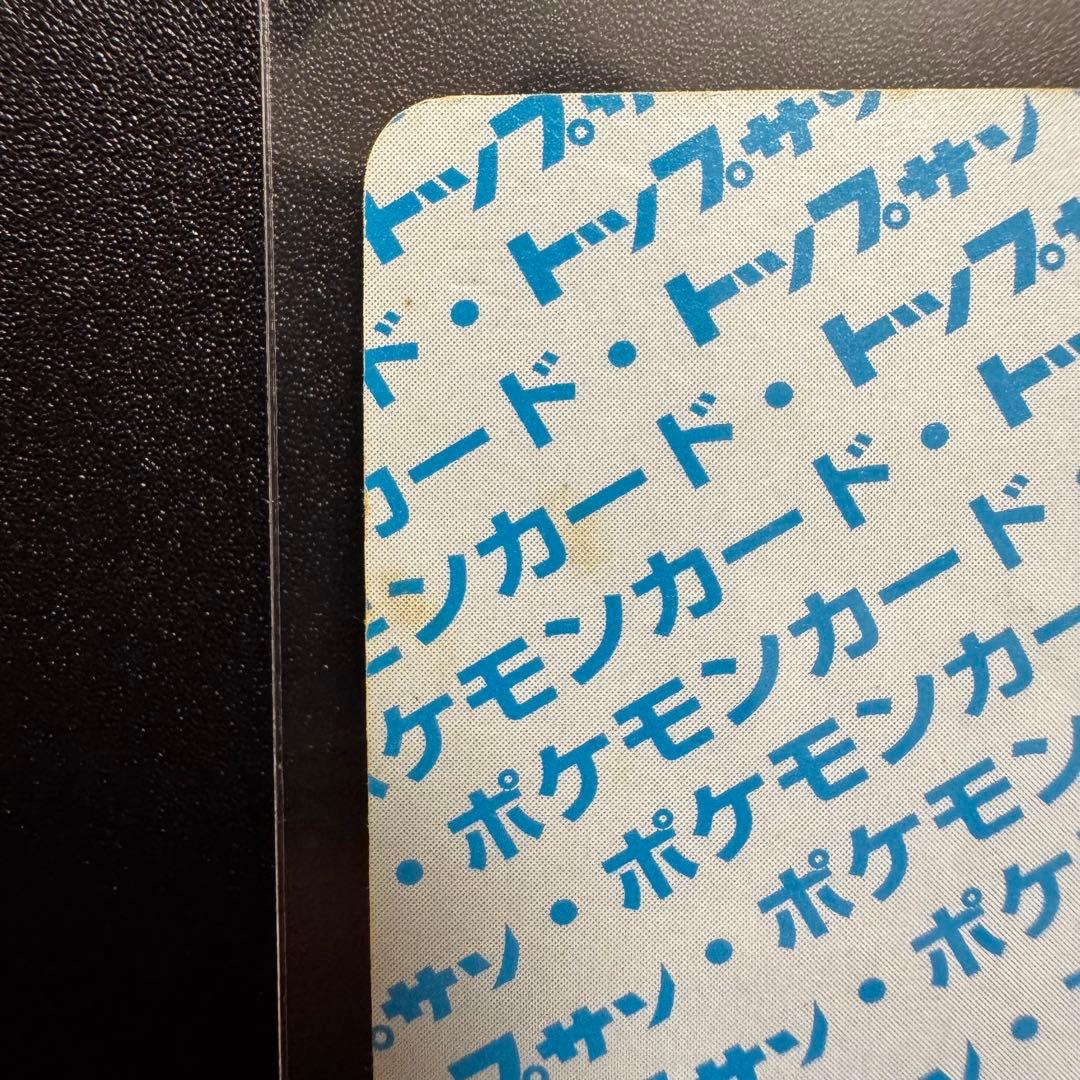 トップ
ド・トップサン
カード・トップサン
モンカード・トップサ
ケモンカード・トッ
・ポケモンカード・
サン・ポケモンカー
プサン・ポケモン
プサン・ポケ
ン・